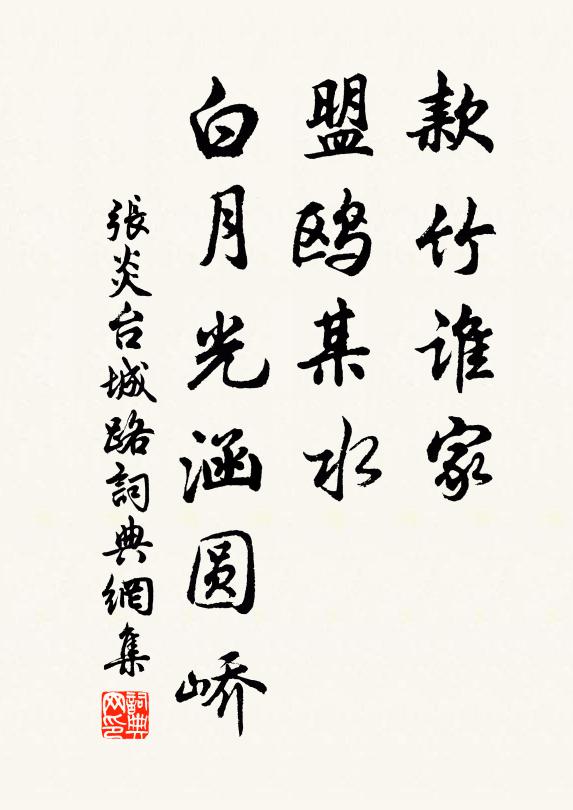 款竹谁家
盟鸥某水
白月光涵圆峤
張炎台城路詞典網集
詞典
网印